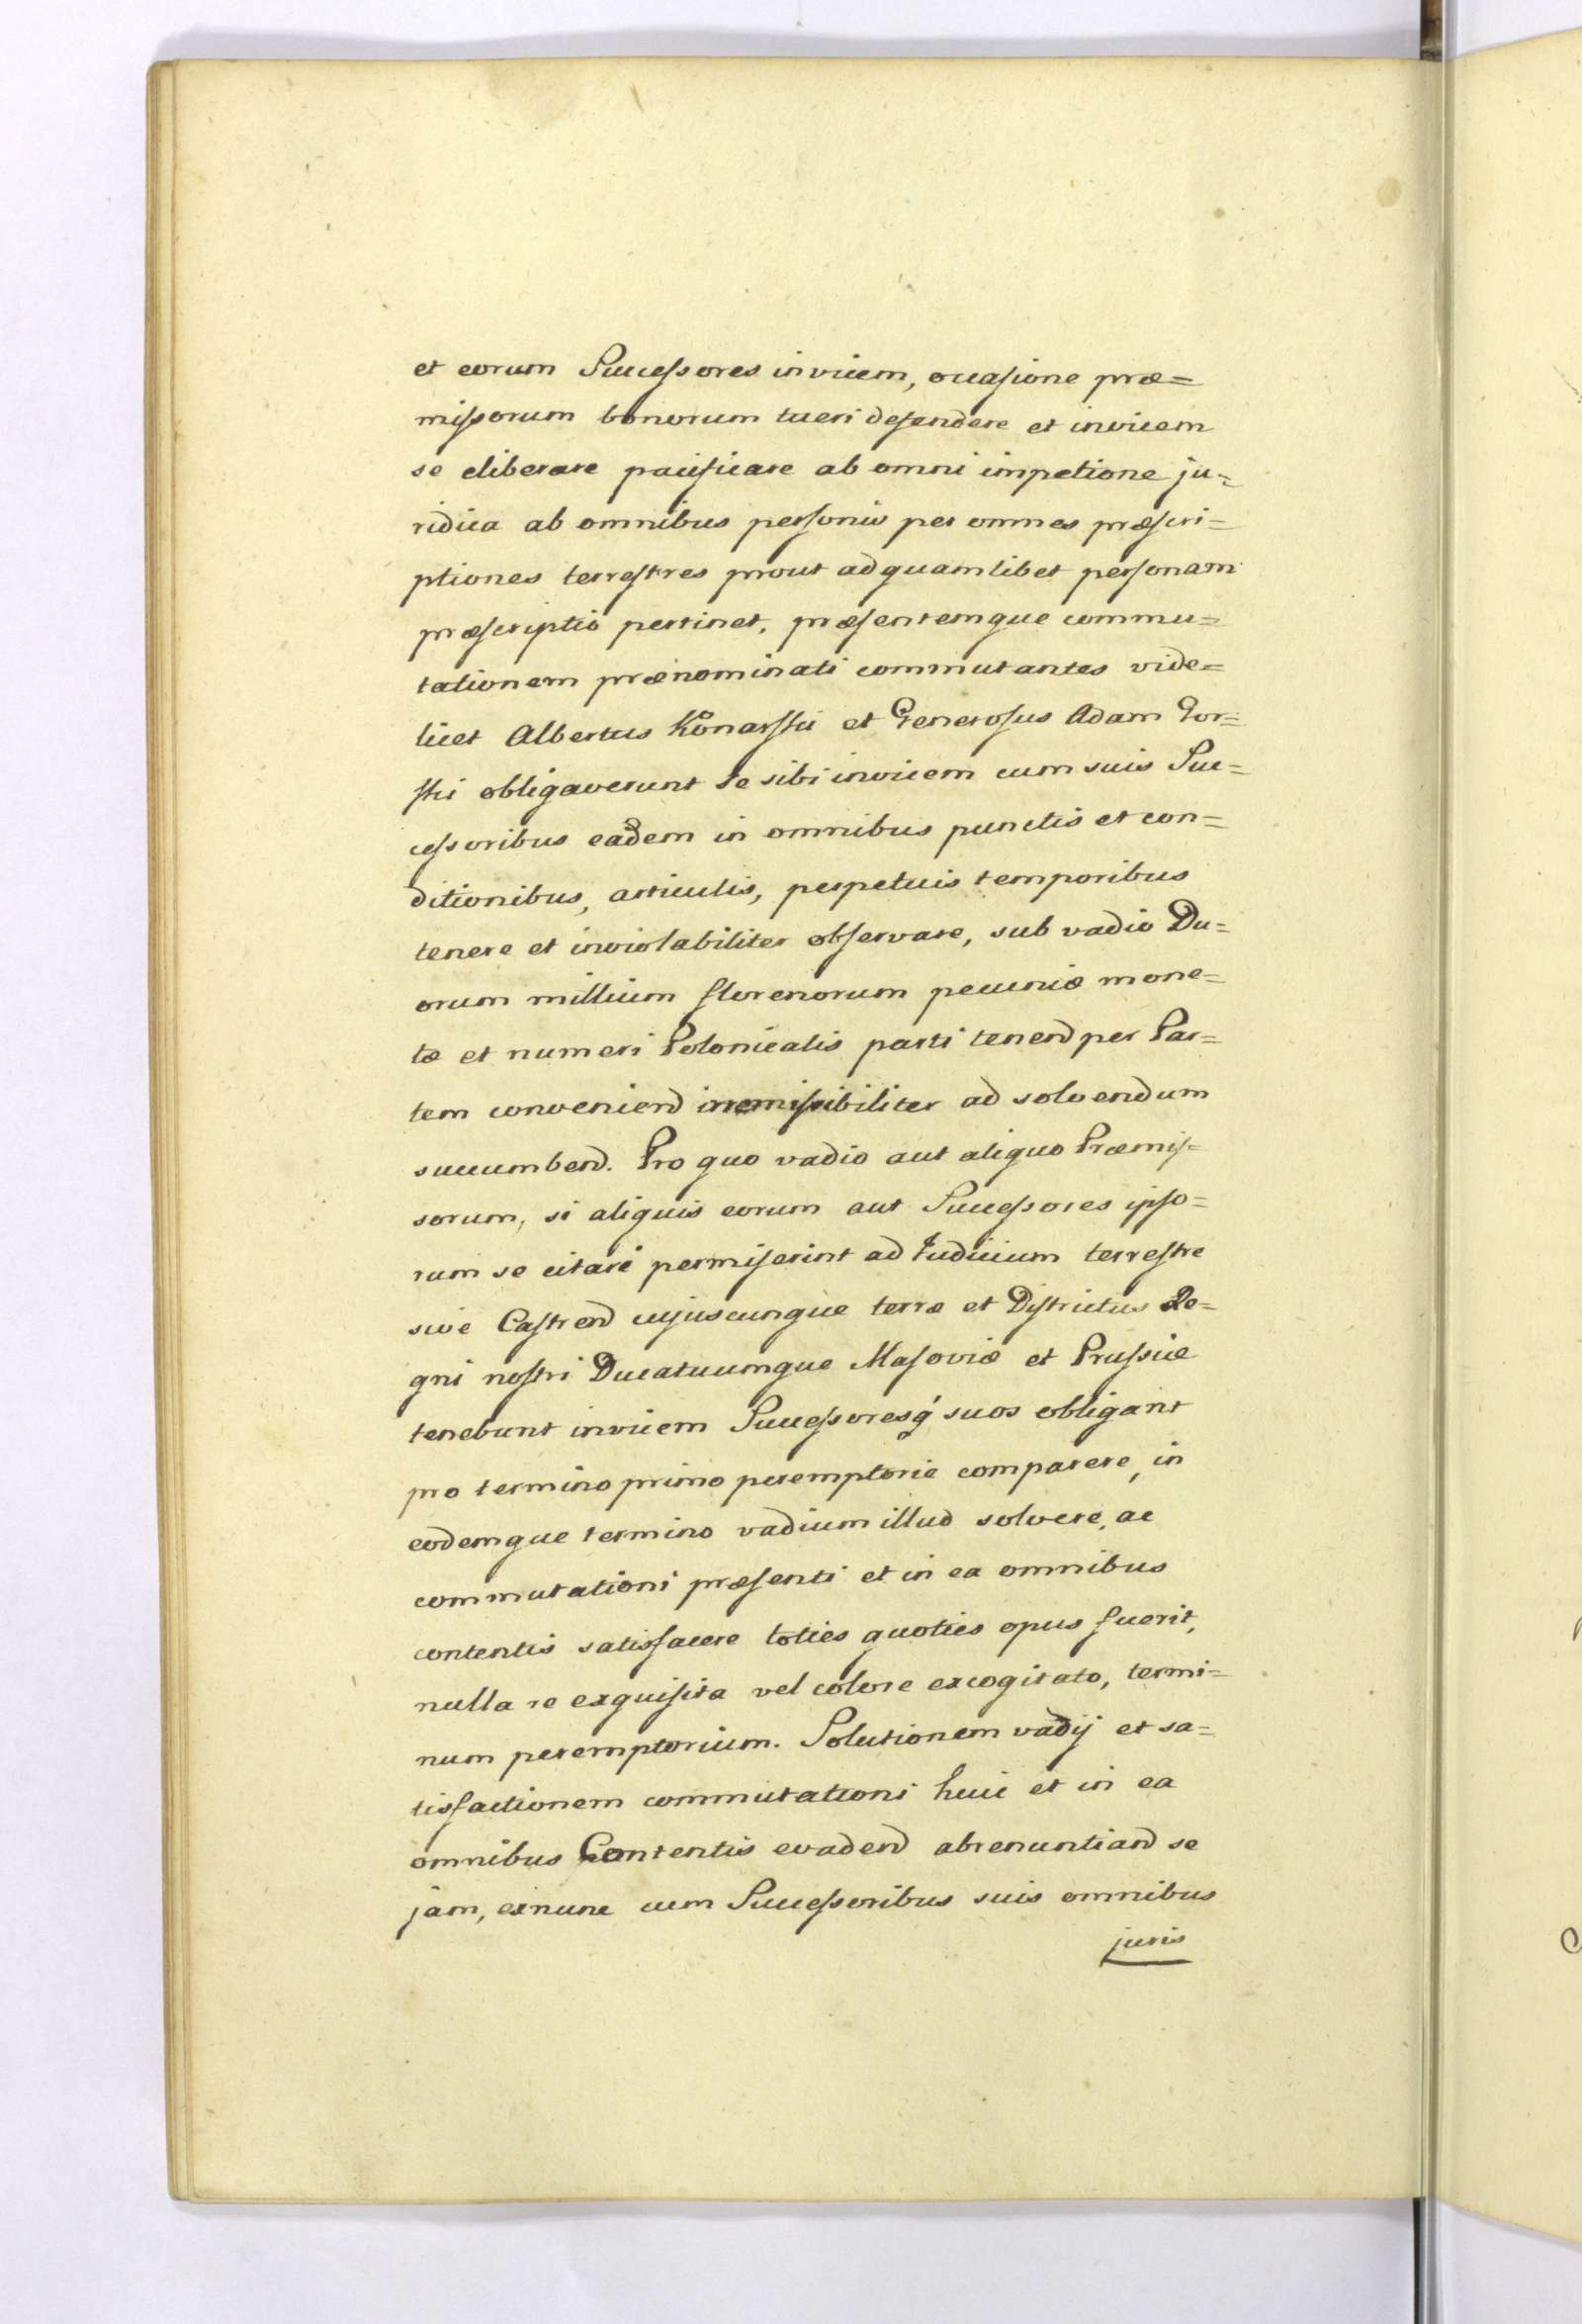 et eorum Succeſsores invicem, occaſione præ=
miſsorum bonorum tueri defendere et invicem
se eliberare pacificare ab omni impetione ju=
ridica ab omnibus perſonis per omnes præſcri=
ptiones terreſtres prout ad quamlibet perſonam
præſcriptio pertinet, præſentemque commu=
tationem prænominati commutantes vide=
licet Albertus Konarſki et Generoſus Adam Gor=
ſki obligaverunt se sibi invicem cum suis Suc=
ceſsoribus eadem in omnibus punctis et con=
ditionibus, articulis, perpetuis temporibus
tenere et inviolabiliter obſervare, sub vadio Du=
orum millium florenorum pecuniæ mone=
tæ et numeri Polonicalis parti tenend per Par=
tem conveniend irremiſsibiliter ad solvendum
succumbend. Pro quo vadio aut aliquo Præmiſ=
sorum, si aliquis eorum aut Succeſsores ipſo=
rum se citari permiſerint ad Judicium terreſtre
sive Caſtrend cujuscunque terræ et Diſtrictus Re=
gni noſtri Ducatuumque Maſoviæ et Pruſsiæ
tenebunt invicem Succeſsoresq́ suos obligant
pro termino primo peremptorie comparere, in
eodemque termino vadium illud solvere, ac
commutationi præſenti et in ea omnibus
contentis satisfacere toties quoties opus fuerit,
nulla re exquiſita vel colore excogitato, termi=
num peremptorium. Solutionem vadij et sa=
tisfactionem commutationi huic et in ea
omnibus Contentis evadend abrenuntiand se
jam, exnunc cum Succeſsoribus suis omnibus
juris